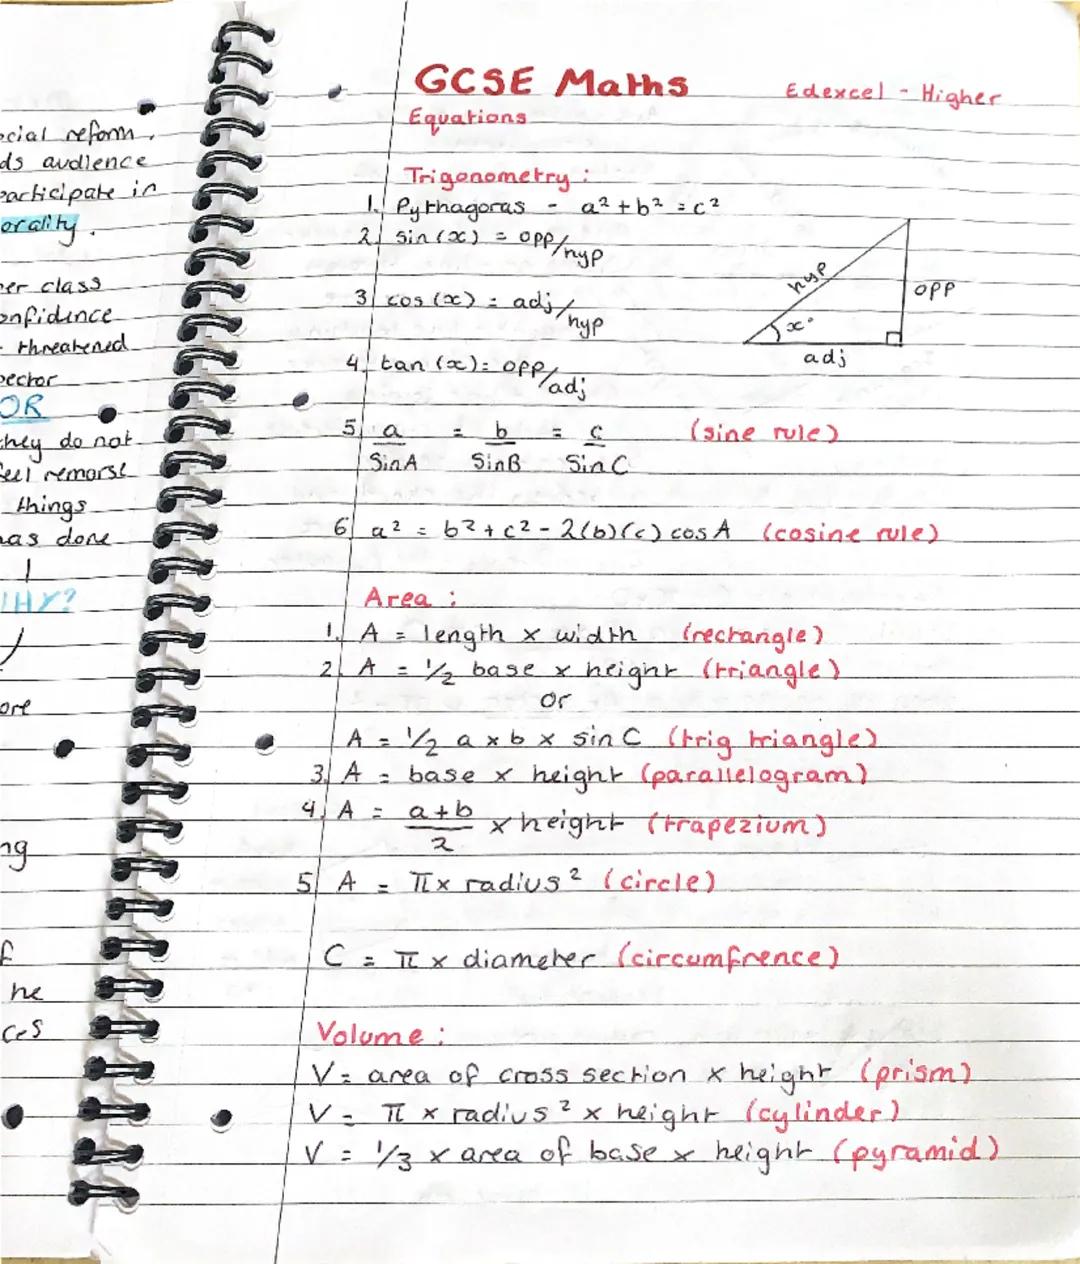 ocial reform.
ds audience
participate in
orality.
per class
onfidence
threatened
pector
OR
they do not
feel remorse
things
has done
WHY?
ore
ng
f
he
ces
GCSE Maths
Edexcel - Higher
Equations
Trigonometry :
1. Pythagoras - a² + b² = c²
2. sin (x) = opp/hyp
3. cos (x) = adj/hyp
4. tan (x) = opp/adj
hyp
opp
x°
adj
5. a/SinA = b/SinB = c/SinC (sine rule)
6. a² = b² + c² - 2(b)(c) cos A (cosine rule)
Area :
1. A = length x width (rectangle)
2. A = 1/2 base x height (triangle)
or
A = 1/2 a x b x sin C (trig triangle)
3. A = base x height (parallelogram)
4. A = a+b/2 x height (trapezium)
5. A = π x radius² (circle)
C = π x diameter (circumfrence)
Volume :
V = area of cross section x height (prism)
V = π x radius² x height (cylinder)
V = 1/3 x area of base x height (pyramid)